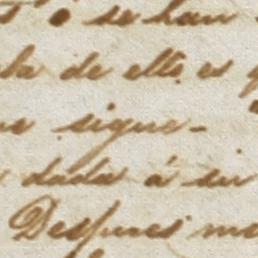 o se han
de ello es
sigue -
dada á su
Despues me